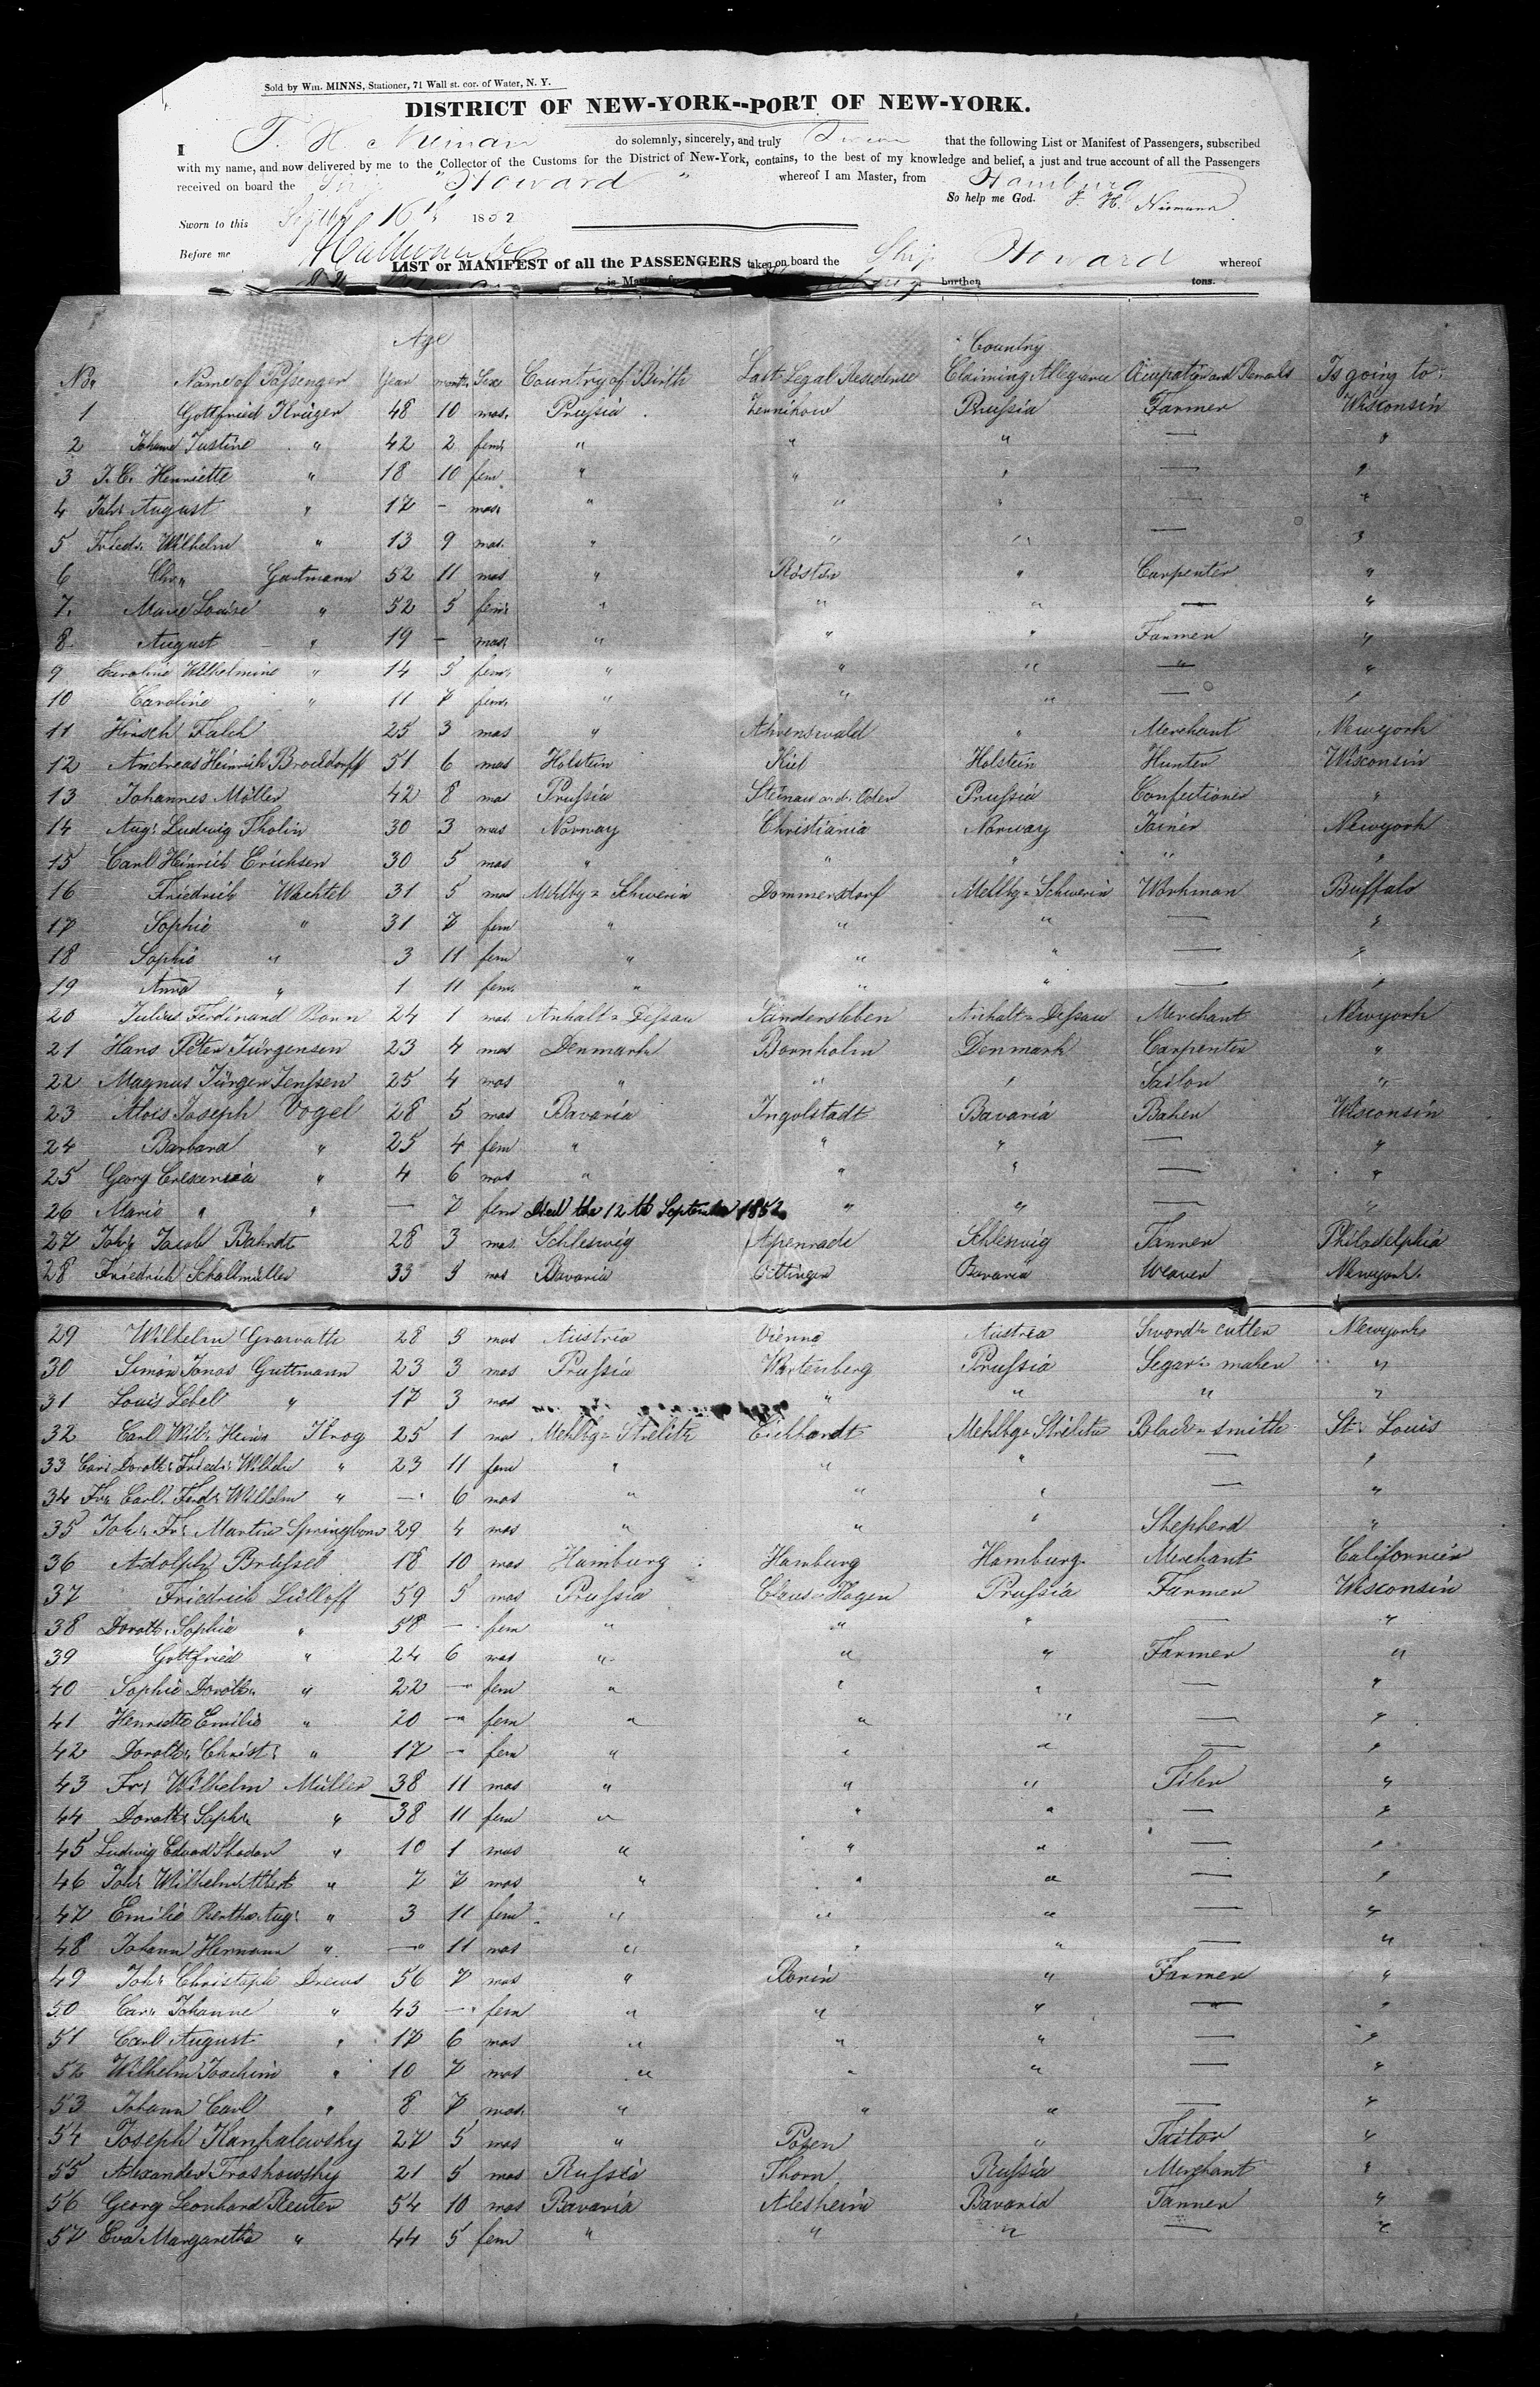 Sold by Wm. MINNS, Stationer, 71 Wall st. cor. of Water, N. Y.
DISTRICT OF NEW-YORK--PORT OF NEW-YORK.
I do solemnly, sincerely, and truly that the following List or Manifest of Passengers, subscribed
with my name, and now delivered by me to the Collector of the Customs for the District of New-York, contains, to the best of my knowledge and belief, a just and true account of all the Passengers
received on board the Ship "Howard" whereof I am Master, from Hamburg
So help me God.
Sworn to this 16th 1852
Before me
LIST or MANIFEST of all the PASSENGERS taken on board the Ship Howard whereof
is Master, burthen tons.
Age Country
No. Name of Passenger Year month Sex Country of Birth Last Legal Residence Claiming Allegiance Ocupation and Remarks Is going to:
1 Gottfried Krüger 48 10 mas. Prussia Zernikow Prussia Farmer Wisconsin
2 Justine " 42 2 fem. " " " — "
3 J. C. Henriette " 18 10 fem " " " — "
4 Joh: August " 17 - mas. " " " — "
5 Friedr: Wilhelm " 13 9 mas. " " " — "
6 Chr: Gartmann 52 11 mas " " Carpenter "
7. Marie Louise " 52 5 fem: " " " — "
8. August " 19 — mas. " " " Farmer "
9 Caroline Wilhelmine " 14 5 fem. " " " — "
10 Caroline " 11 7 fem. " " " — "
11 Hirsch Falck 25 3 mas " Ahrenswald " Merchant Newyork
12 Andreas Heinrich Brockdorff 51 6 mas Holstein Kiel Holstein Hunter Wisconsin
13 Johannes Möller 42 8 mas Prussia Steinau a d. Oder Prussia Confectioner "
14 Aug: Ludwig Tholin 30 3 mas Norway Christiania Norway Joiner Newyork
15 Carl Heinrich Erichsen 30 5 mas " " " " "
16 Friedrich Wachtel 31 5 mas Mehlbg = Schwerin Dommersdorf Mehlbg = Schwerin Workman Buffalo
17 Sophie " 31 7 fem " " " — "
18 Sophie " 3 11 fem " " " — "
19 Anna " 1 11 fem. " " " — "
20 Julius Ferdinand Bonn 24 1 mas Anhalt = Dessau Sandersleben Anhalt = Dessau Merchant Newyork
21 Hans Peter Jürgensen 23 4 mas Denmark Bornholm Denmark Carpenter "
22 Magnus Jürgen Jenssen 25 4 mas " " " Sailor "
23 Alois Joseph Vogel 28 5 mas Bavaria Ingolstadt Bavaria Baker Wisconsin
24 Barbara " 25 4 fem " " " — "
25 Georg " 4 6 mas " " " — "
26 Marie " " — 7 fem Died the 12th September 1852 " " — "
27 Joh: Jacob Bahndt 28 3 mas. Schleswig Apenrade Schleswig Tanner Philadelphia
28 Friedrich Schallmüller 33 3 mas Bavaria Oettingen Bavaria Weaver Newyork.
29 Wilhelm 28 3 mas Austria Vienna Austria Sword = cutler Newyork
30 Simon Jonas Guttmann 23 3 mas Prussia Wartenberg Prussia Segar = maker "
31 Louis Lebel " 17 3 mas " " " "
32 Carl Wilh: Heinr Krog 25 1 mas Mehlbg = Strelitz Mehlbg = Strelitz Black = smith St: Louis
33 Car: Doroth: Friedr: Wilhelm " 23 11 fem " " " — "
34 Fr: Carl. Ferd: Wilhelm " — 6 mas " " " — "
35 Joh: Fr: Martin Springborn 29 4 mas " " " Shepherd "
36 Adolph Brüssel 18 10 mas Hamburg Hamburg Hamburg Merchant Californien
37 Friedrich Lülloff 59 5 mas Prussia Claus = Hagen Prussia Farmer Wisconsin
38 Doroth: Sophia " 58 — fem " " " — "
39 Gottfried " 24 6 mas " " " Farmer "
40 Sophie Doroth: " 22 — fem " " " — "
41 Henriette Emilie " 20 — fem " " " — "
42 Doroth: Christ: " 17 — fem " " " — "
43 Fr: Wilhelm Müller 38 11 mas " " " Tiler "
44 Doroth: Soph: " 38 11 fem " " " — "
45 Ludwig Eduard " 10 1 mas " " " — "
46 Joh: Wilhelm Albert " 7 7 mas " " " — "
47 Emilie Bertha Aug: " 3 11 fem " " " — "
48 Johann Hermann " — 11 mas " " " — "
49 Joh: Christoph Drews 56 7 mas " Ronin " Farmer "
50 Car: Johanne " 43 — fem " " " — "
51 Carl August " 17 6 mas " " " — "
52 Wilhelm Joachim " 10 7 mas " " " — "
53 Johann Carl " 8 7 mas. " " " — "
54 Joseph Kanpalewsky 27 5 mas " Posen " Tailor "
55 Alexander Troskowsky 21 5 mas Russia Thorn Russia Merchant "
56 Georg Leonhard Reuter 54 10 mas Bavaria Alesheim Bavaria Tanner "
57 Eva Margaretha " 44 5 fem " " " — "